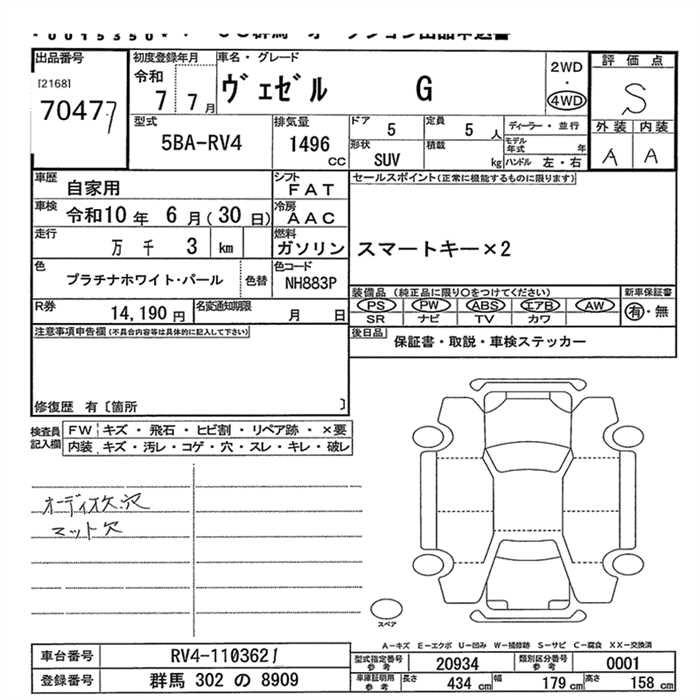 出品番号
[2168]
70477
初度登録年月
令和
7 7月
車名・グレード
ヴェゼル G
2WD
・
4WD
評価点
S
外装 内装
A A
型式
5BA-RV4
排気量
1496 cc
ドア 5
定員 5 人
形状 SUV
積載 kg
ディーラー・並行
モデル年式 年
ハンドル 左・右
車歴 自家用
シフト FAT
セールスポイント(正常に機能するものに限ります)
車検 令和10年 6月(30日)
冷房 AAC
走行 万 千 3 km
燃料 ガソリン
スマートキー×2
色 プラチナホワイト・パール
色替
色コード NH883P
装備品 (純正品に限り〇をつけてください)
新車保証書
PS PW ABS エアB AW
有・無
SR ナビ TV カワ
R券 14,190円
名変通知期限 月 日
注意事項申告欄(不具合内容等は具体的に記入して下さい)
後日品 保証書・取説・車検ステッカー
修復歴 有〔箇所 〕
検査員記入欄
FW キズ・飛石・ヒビ割・リペア跡・×要
内装 キズ・汚レ・コゲ・穴・スレ・キレ・破レ
オーディオ欠.穴
マット欠
スペア
A－キズ E－エクボ U－凹み W－補修跡 S－サビ C－腐食 XX－交換済
車台番号 RV4-1103621
型式指定番号 参考 20934
類別区分番号 参考 0001
登録番号 群馬 302 の 8909
車庫証明用 参考
長さ 434 cm 幅 179 cm 高さ 158 cm